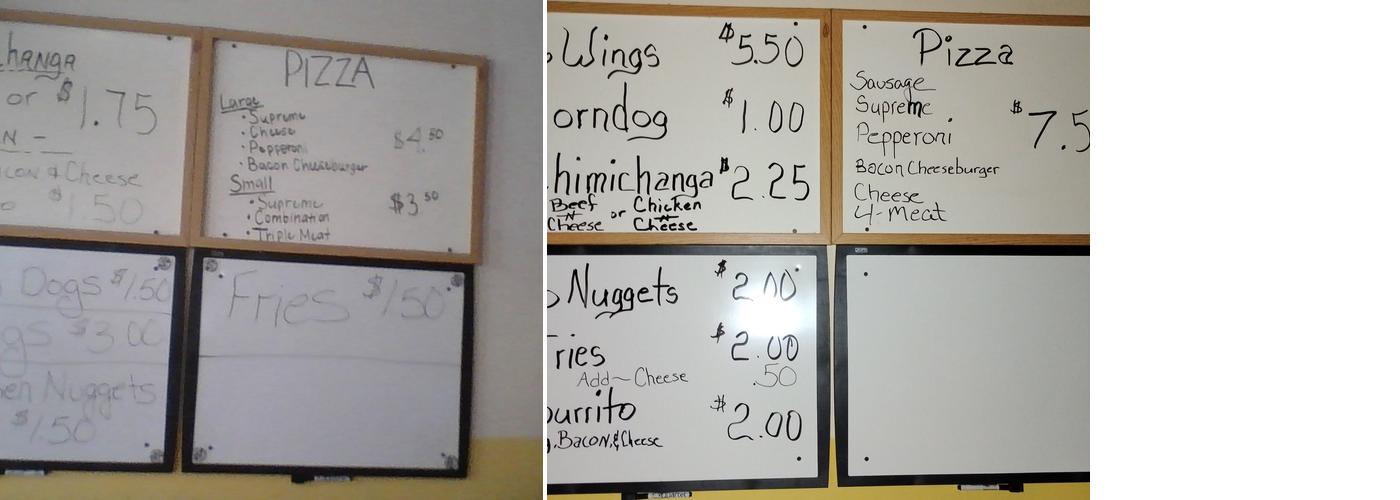 hanga
or $1.75
N -
con & Cheese
$1.50
PIZZA
Large
• Supreme
• Cheese
• Pepperoni
• Bacon Cheeseburger
$4.50
Small
• Supreme
• Combination
• Triple Meat
$3.50
Dogs $1.50
gs $3.00
en Nuggets
$1.50
Fries $1.50
Wings $5.50
orndog $1.00
himichanga $2.25
Beef N Cheese or Chicken N Cheese
Pizza
Sausage
Supreme
Pepperoni
Bacon Cheeseburger
Cheese
4-Meat
$7.5
Nuggets $2.00
ries $2.00
Add~Cheese .50
urrito $2.00
, Bacon, & Cheese